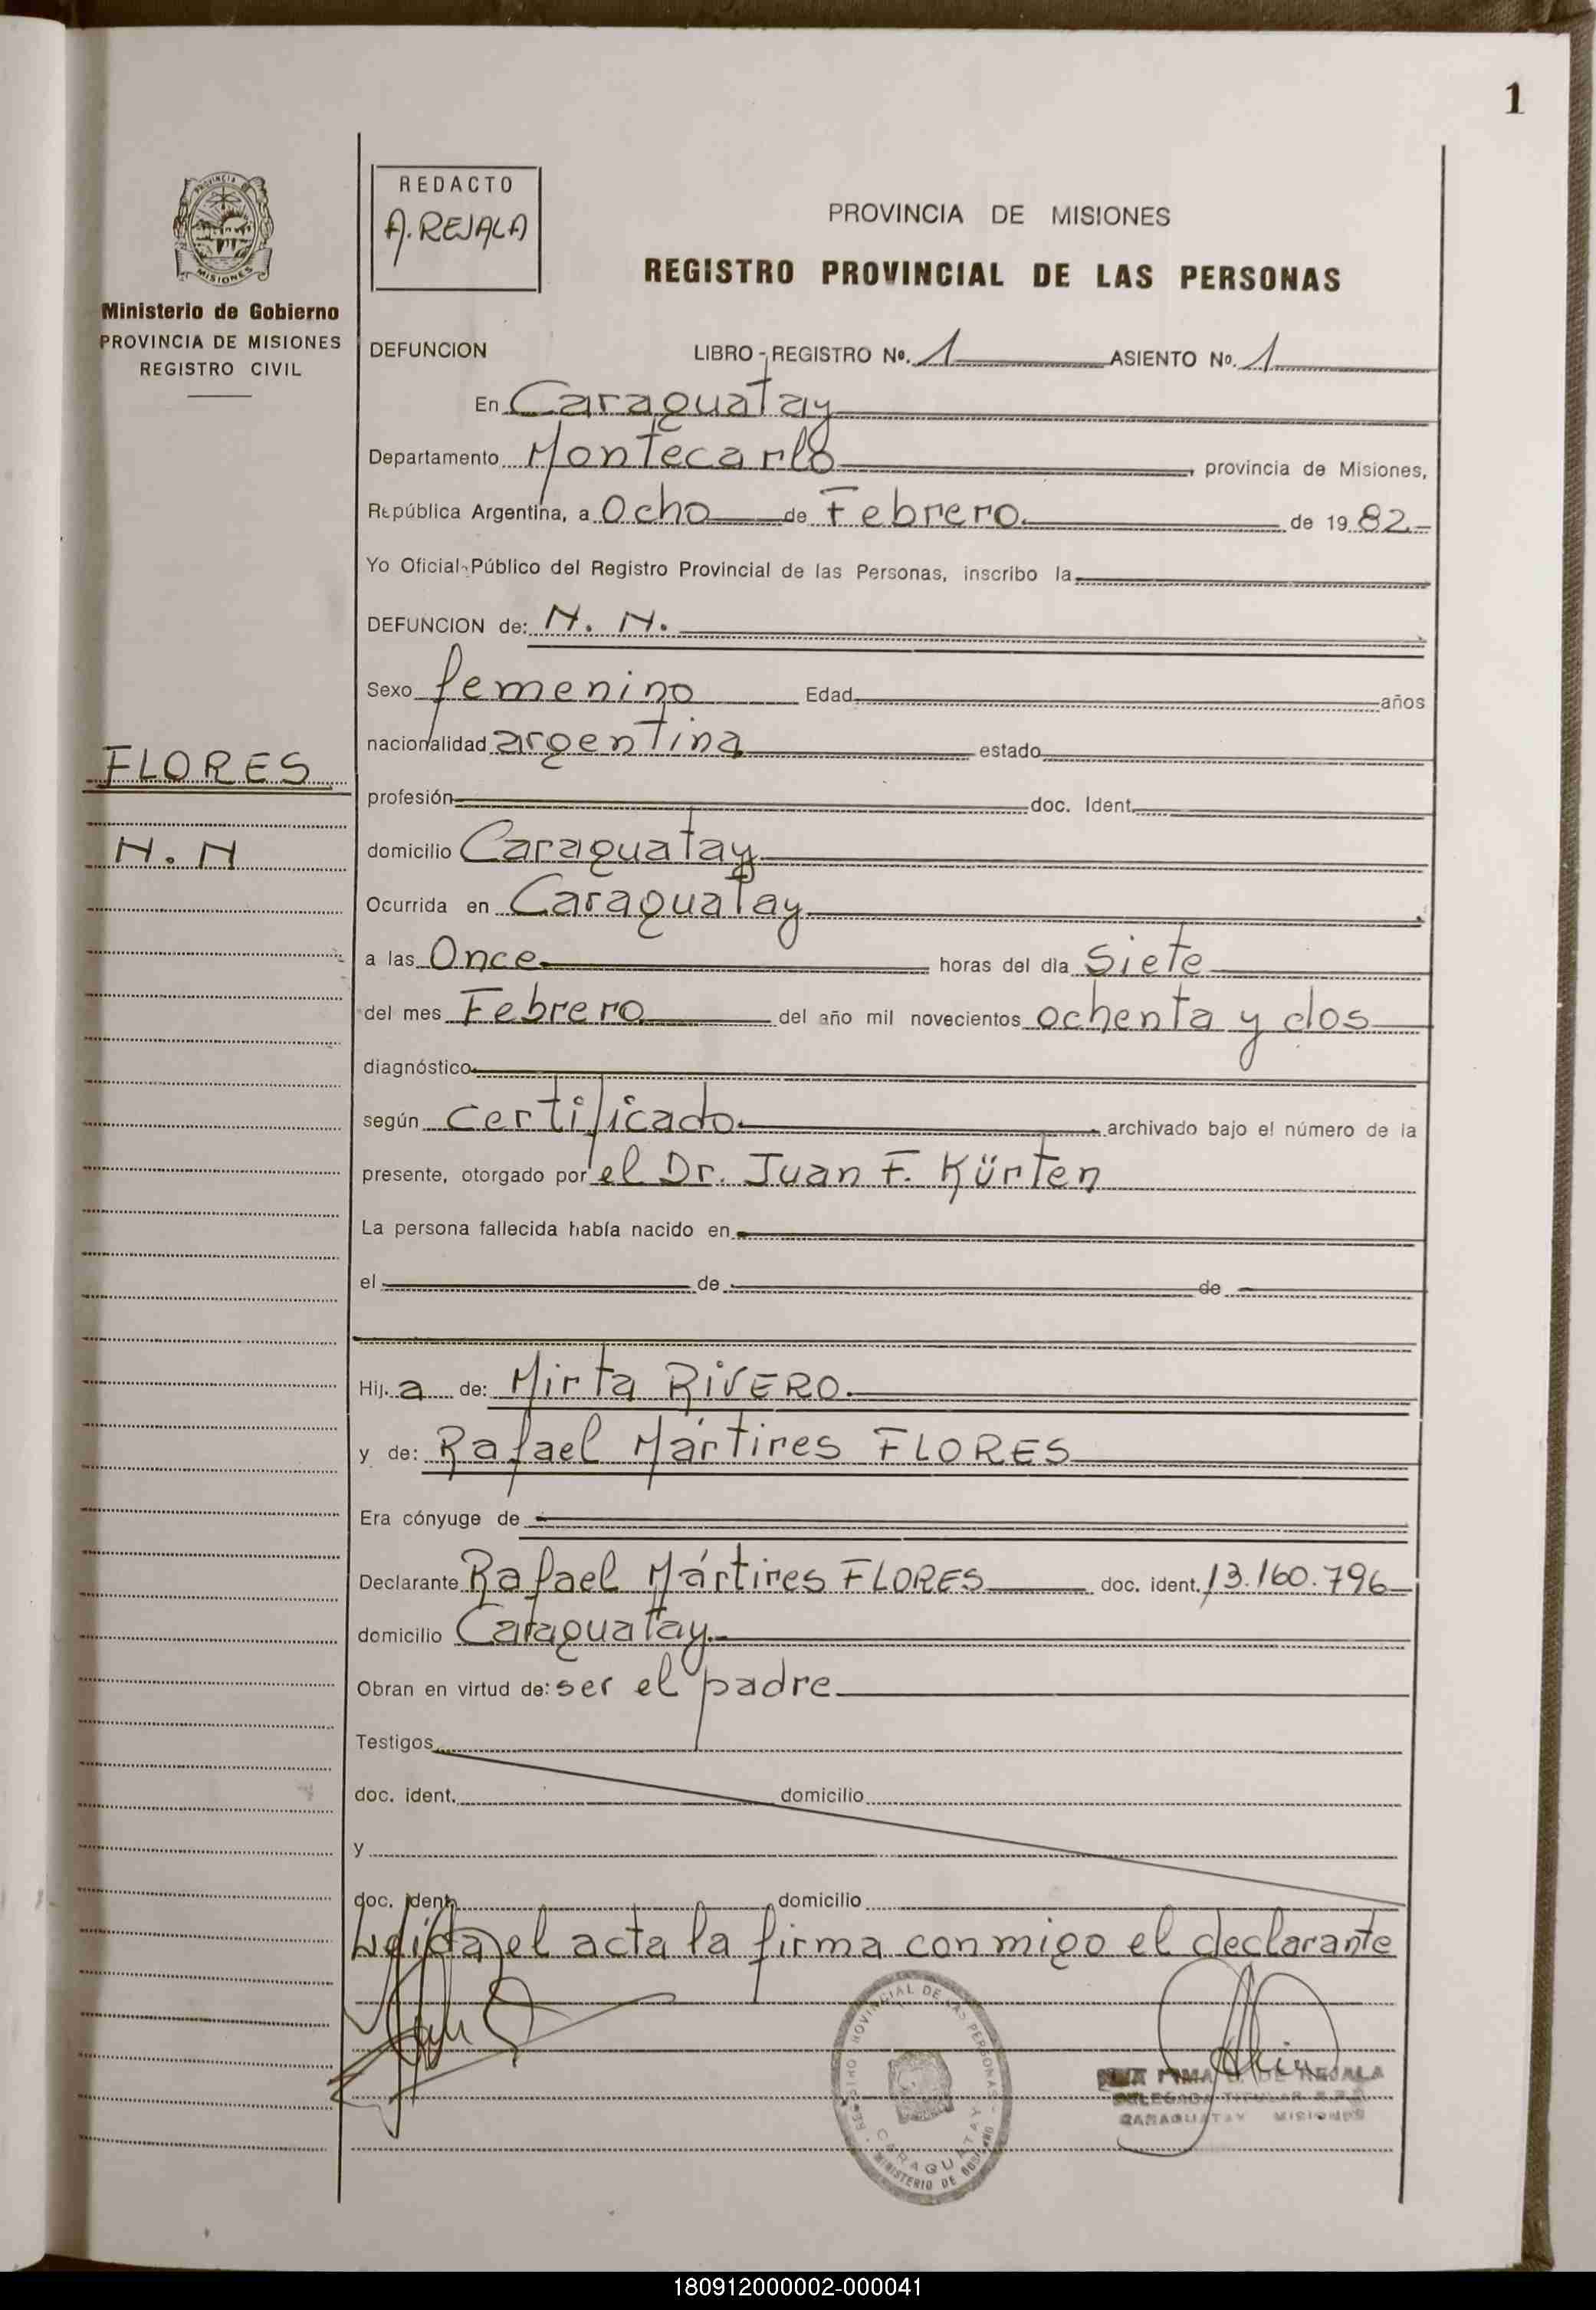 1
PROVINCIA DE
MISIONES
Ministerio de Gobierno
PROVINCIA DE MISIONES
REGISTRO CIVIL
REDACTO
A. REJALA
PROVINCIA DE MISIONES
REGISTRO PROVINCIAL DE LAS PERSONAS
DEFUNCION LIBRO-REGISTRO Nº. 1 ASIENTO Nº. 1
En Caraguatay
Departamento Montecarlo, provincia de Misiones,
República Argentina, a Ocho de Febrero de 1982
Yo Oficial Público del Registro Provincial de las Personas, inscribo la
DEFUNCION de: N. N.
Sexo femenino Edad años
nacionalidad argentina estado
FLORES
profesión doc. Ident.
N. N
domicilio Caraguatay
Ocurrida en Caraguatay
a las Once horas del dia Siete
del mes Febrero del año mil novecientos ochenta y dos
diagnóstico
según certificado archivado bajo el número de la
presente, otorgado por el Dr. Juan F. Kürten
La persona fallecida había nacido en
el de de
Hij.a de: Mirta RIVERO
y de: Rafael Mártires FLORES
Era cónyuge de
Declarante Rafael Mártires FLORES doc. ident. 13.160.796
domicilio Caraguatay
Obran en virtud de: ser el padre
Testigos
doc. ident. domicilio
y
doc. ident. domicilio
Leída el acta la firma conmigo el declarante
REGISTRO PROVINCIAL DE LAS PERSONAS
CARAGUATAY
MINISTERIO DE GOBIERNO
DE REJALA
DELEGADA TITULAR
CARAGUATAY MISIONES
180912000002-000041